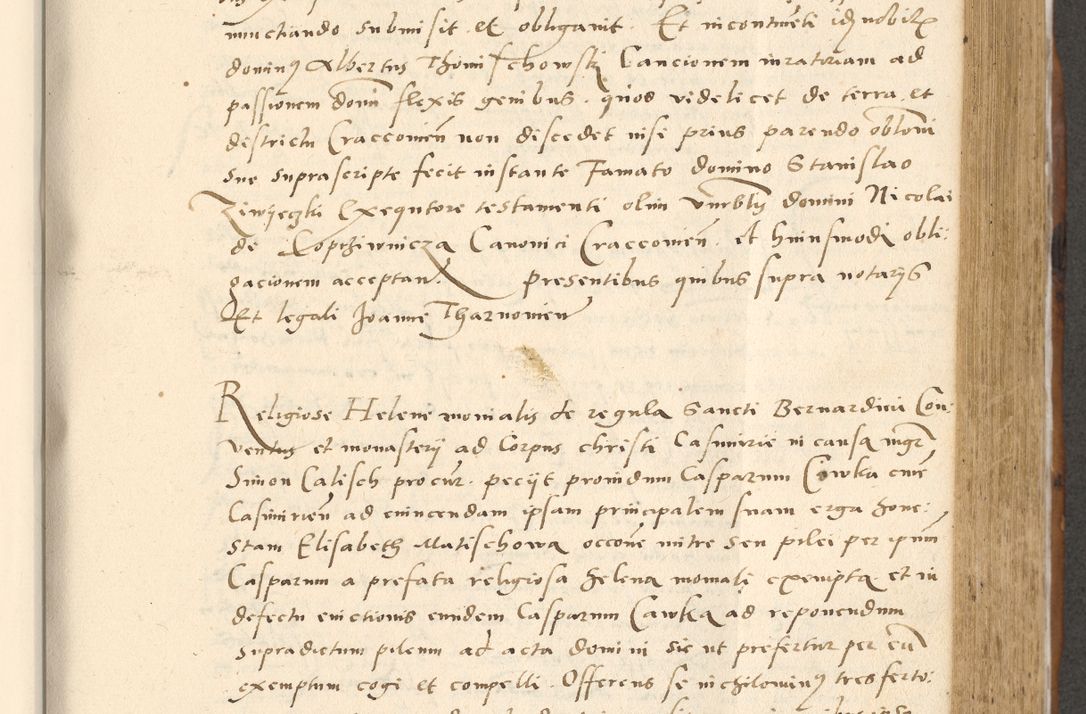 nunctiando submisit et obligavit. Et incontinenti idem nobilis
dominus Albertus Thomischowsky Caucionem iuratoriam ad
passionem domini flexis genibus. quod videlicet de terra et
districtu Craccovien non discedet nisi prius parendo obloni
sue suprascripte fecit instante Famato domino Stanislao
Ziwyeczki Exequtore testamenti olim vnrblis domini Nicolai
de Coprziwnicza Canonici Craccovien. et huiusmodi obli:
gacionem acceptan. presentibus quibus supra notarijs
Et legali Joanne Tharnovien
Religiose Helene monialis de regula Sancti Bernardini Con:
ventus et monasterij ad Corpus christi Casimirie in causa mgr
Simon Calisch procur. peciit providum Casparum Cawka civem
Casimirien ad evincendam ipsam principalem suam erga hone:
stam Elisabeth Matischowa occone mitre seu pilei per ipsum
Casparum a prefata religiosa helena moniali exempta et in
defectu evictionis eundem Casparum Cawka ad reponendum
supradictum pileum ad acta domini sic ut prefertur per eum
exemptum cogi et compelli. Offerens se nichilominus tres ferto: